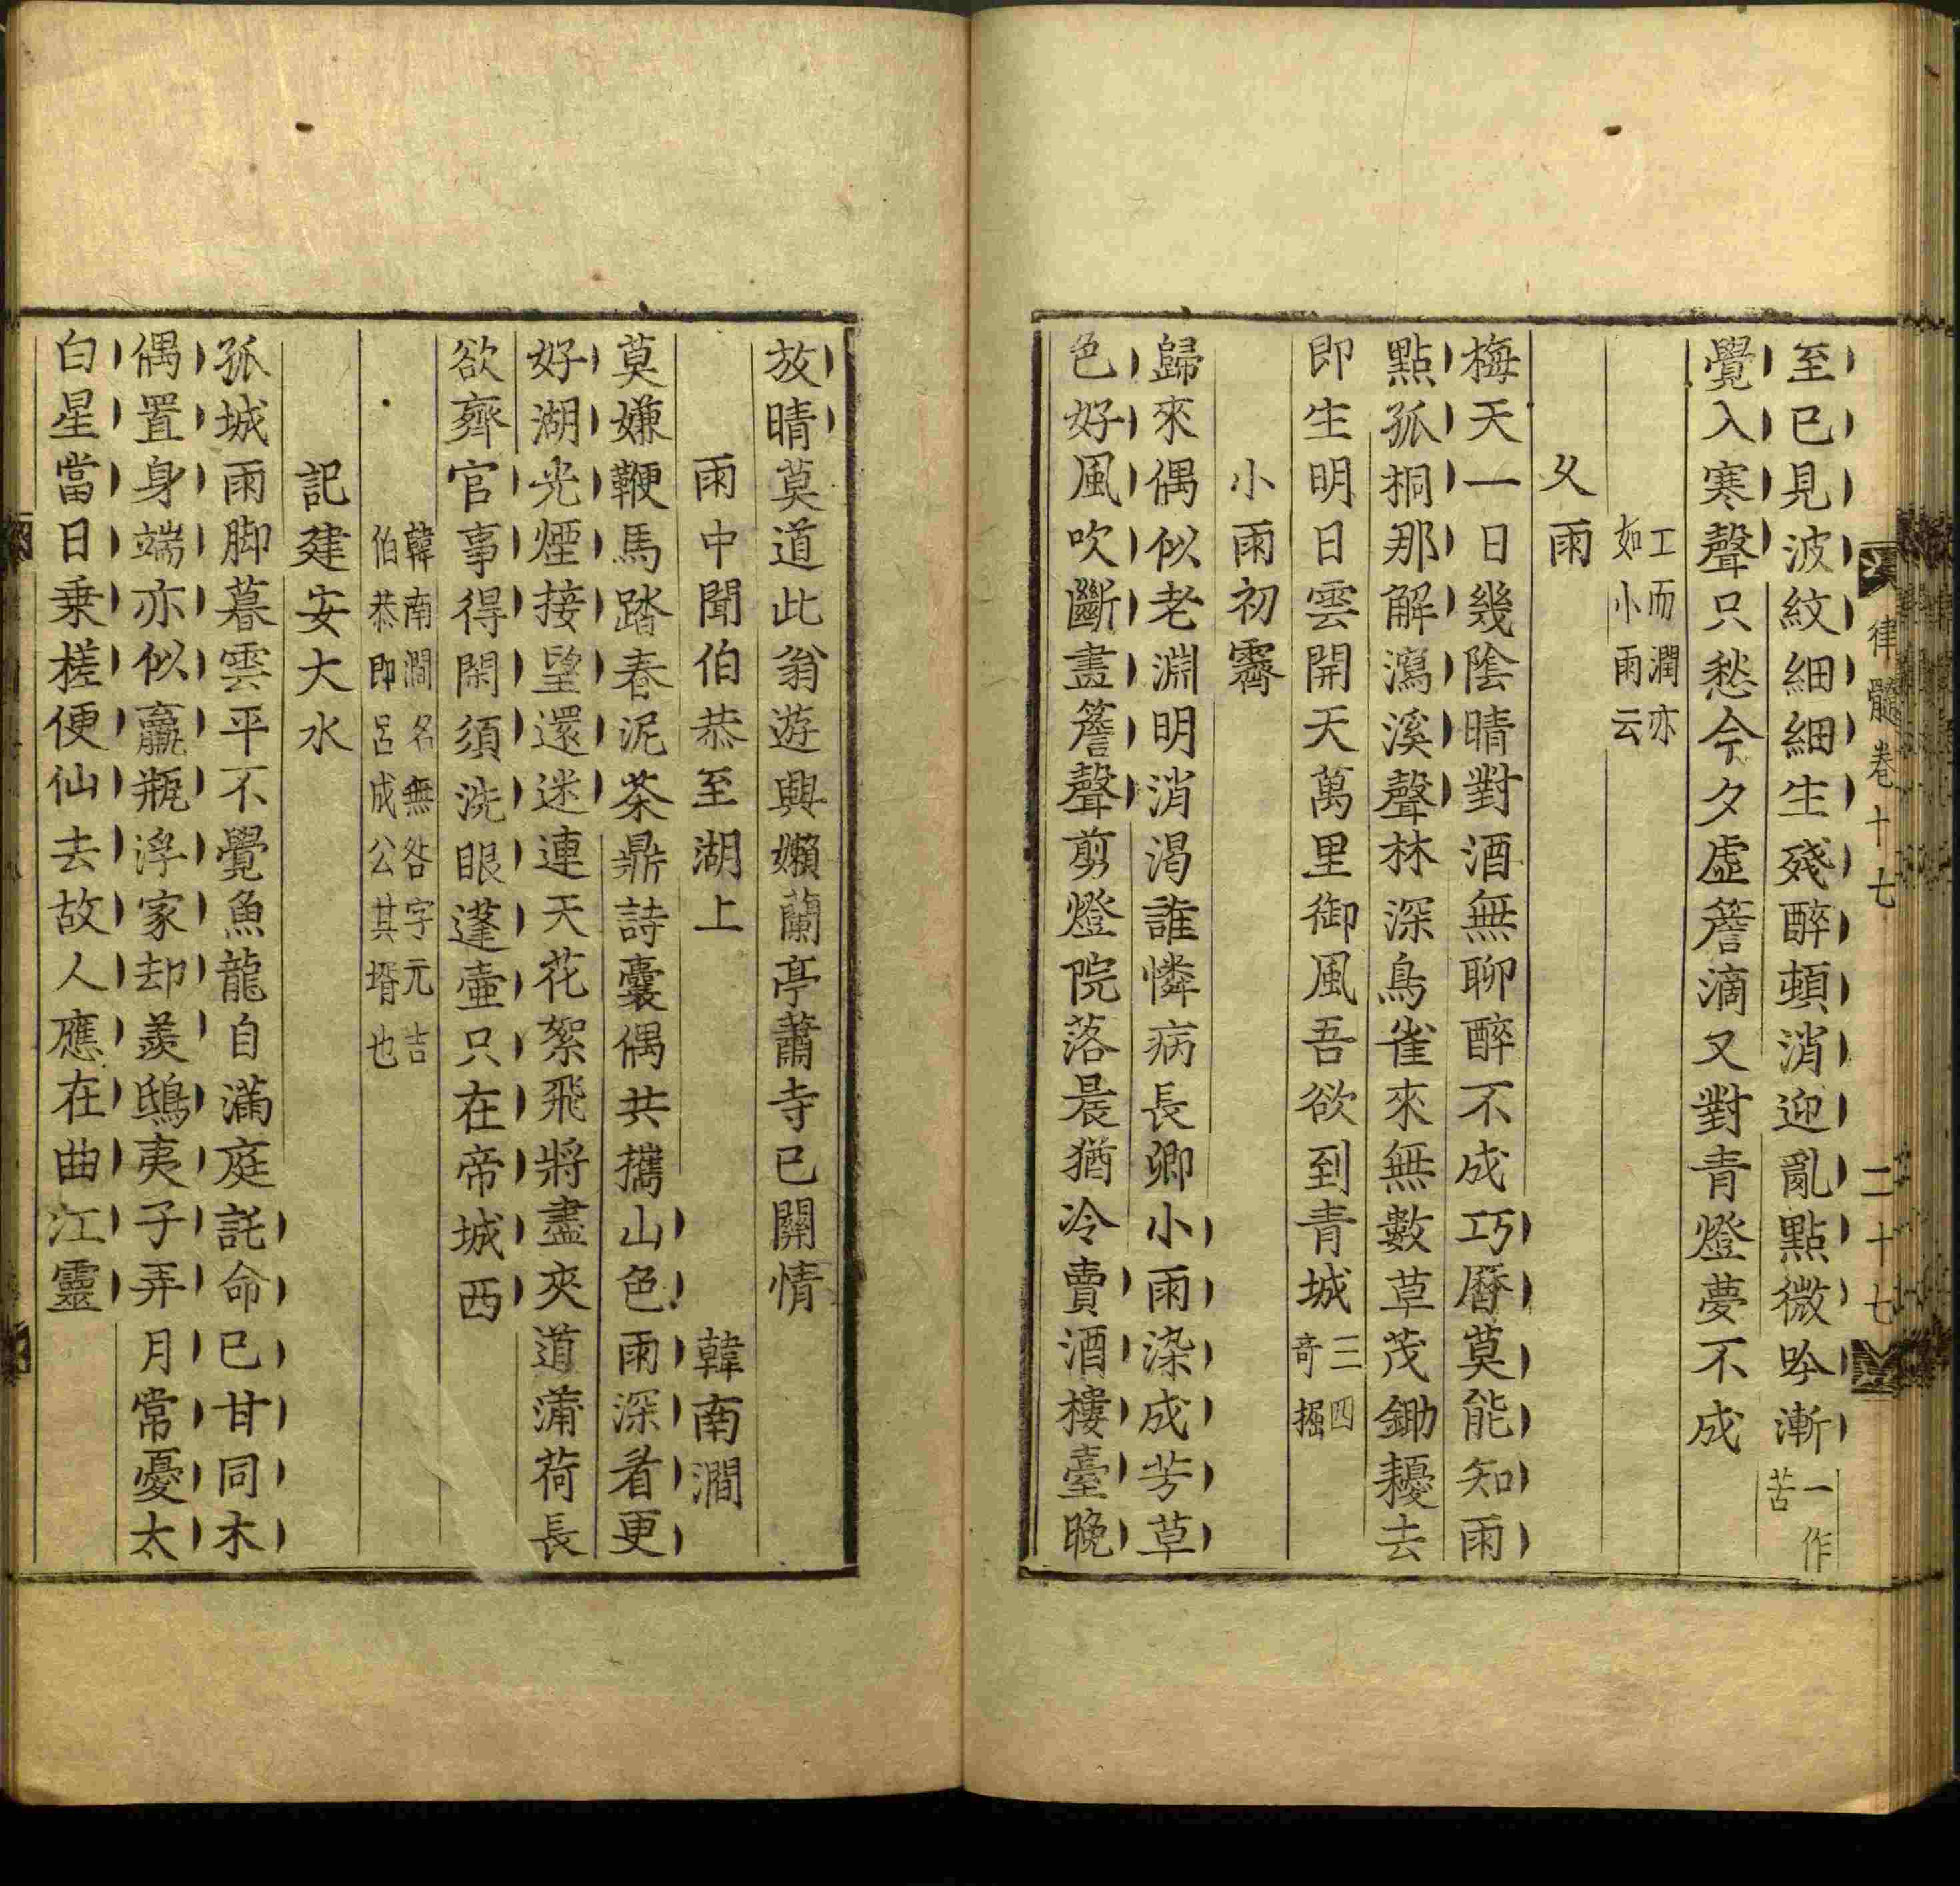 律髓卷十七　二十七
至已見波紋細細生殘醉頓消迎亂點微吟漸一作苦
覺入寒聲只愁今夕虛簷滴又對青燈夢不成
工而潤亦如小雨云
久雨
梅天一日幾陰晴對酒無聊醉不成巧曆莫能知雨
點孤桐那解瀉溪聲林深鳥雀來無數草茂鋤耰去
即生明日雲開天萬里御風吾欲到青城三四奇掘
小雨初霽
歸來偶似老淵明消渴誰憐病長卿小雨染成芳草
色好風吹斷畫簷聲剪燈院落晨猶冷賣酒樓臺晚
放晴莫道此翁遊興嬾蘭亭蕭寺已關情
雨中聞伯恭至湖上　韓南澗
莫嫌鞭馬踏春泥茶鼎詩囊偶共攜山色雨深看更
好湖光煙接望還迷連天花絮飛將盡夾道蒲荷長
欲齊官事得閑須洗眼蓬壺只在帝城西
韓南澗名無咎字元吉伯恭即呂成公其壻也
記建安大水
孤城雨脚暮雲平不覺魚龍自滿庭託命已甘同木
偶置身端亦似羸瓶浮家却羨鴟夷子弄月常憂太
白星當日乗槎便仙去故人應在曲江靈